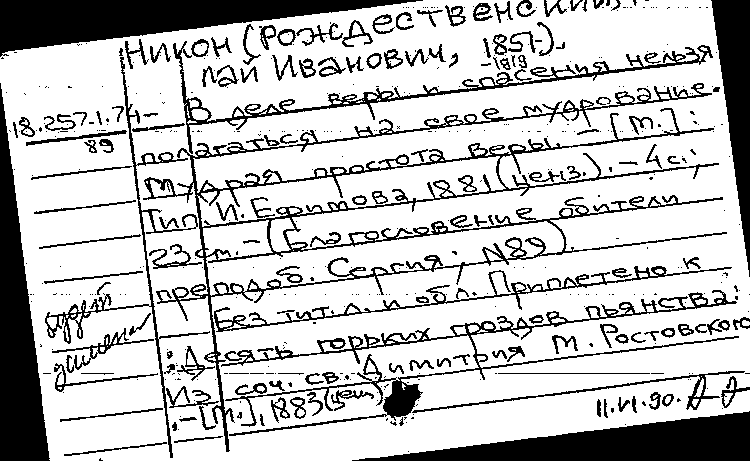 Никон (Рождественский,
лай Иванович, 1857-).
-1919
18.257.1.74-
89
В деле веры и спасения нельзя
полагаться на свое мудрование.
Мудрая простота веры. - [М.]:
Тип. И. Ефимова, 1881 (ценз.). - 4 с.;
23 см. - (Благословение обители
преподоб. Сергия; N89).
Без тит. л. и обл. Приплетено к
: Десять горьких гроздов пьянства:
Из соч. св. Димитрия м. Ростовского
. - [М.], 1883 (ценз)
будет
11.VI.90.